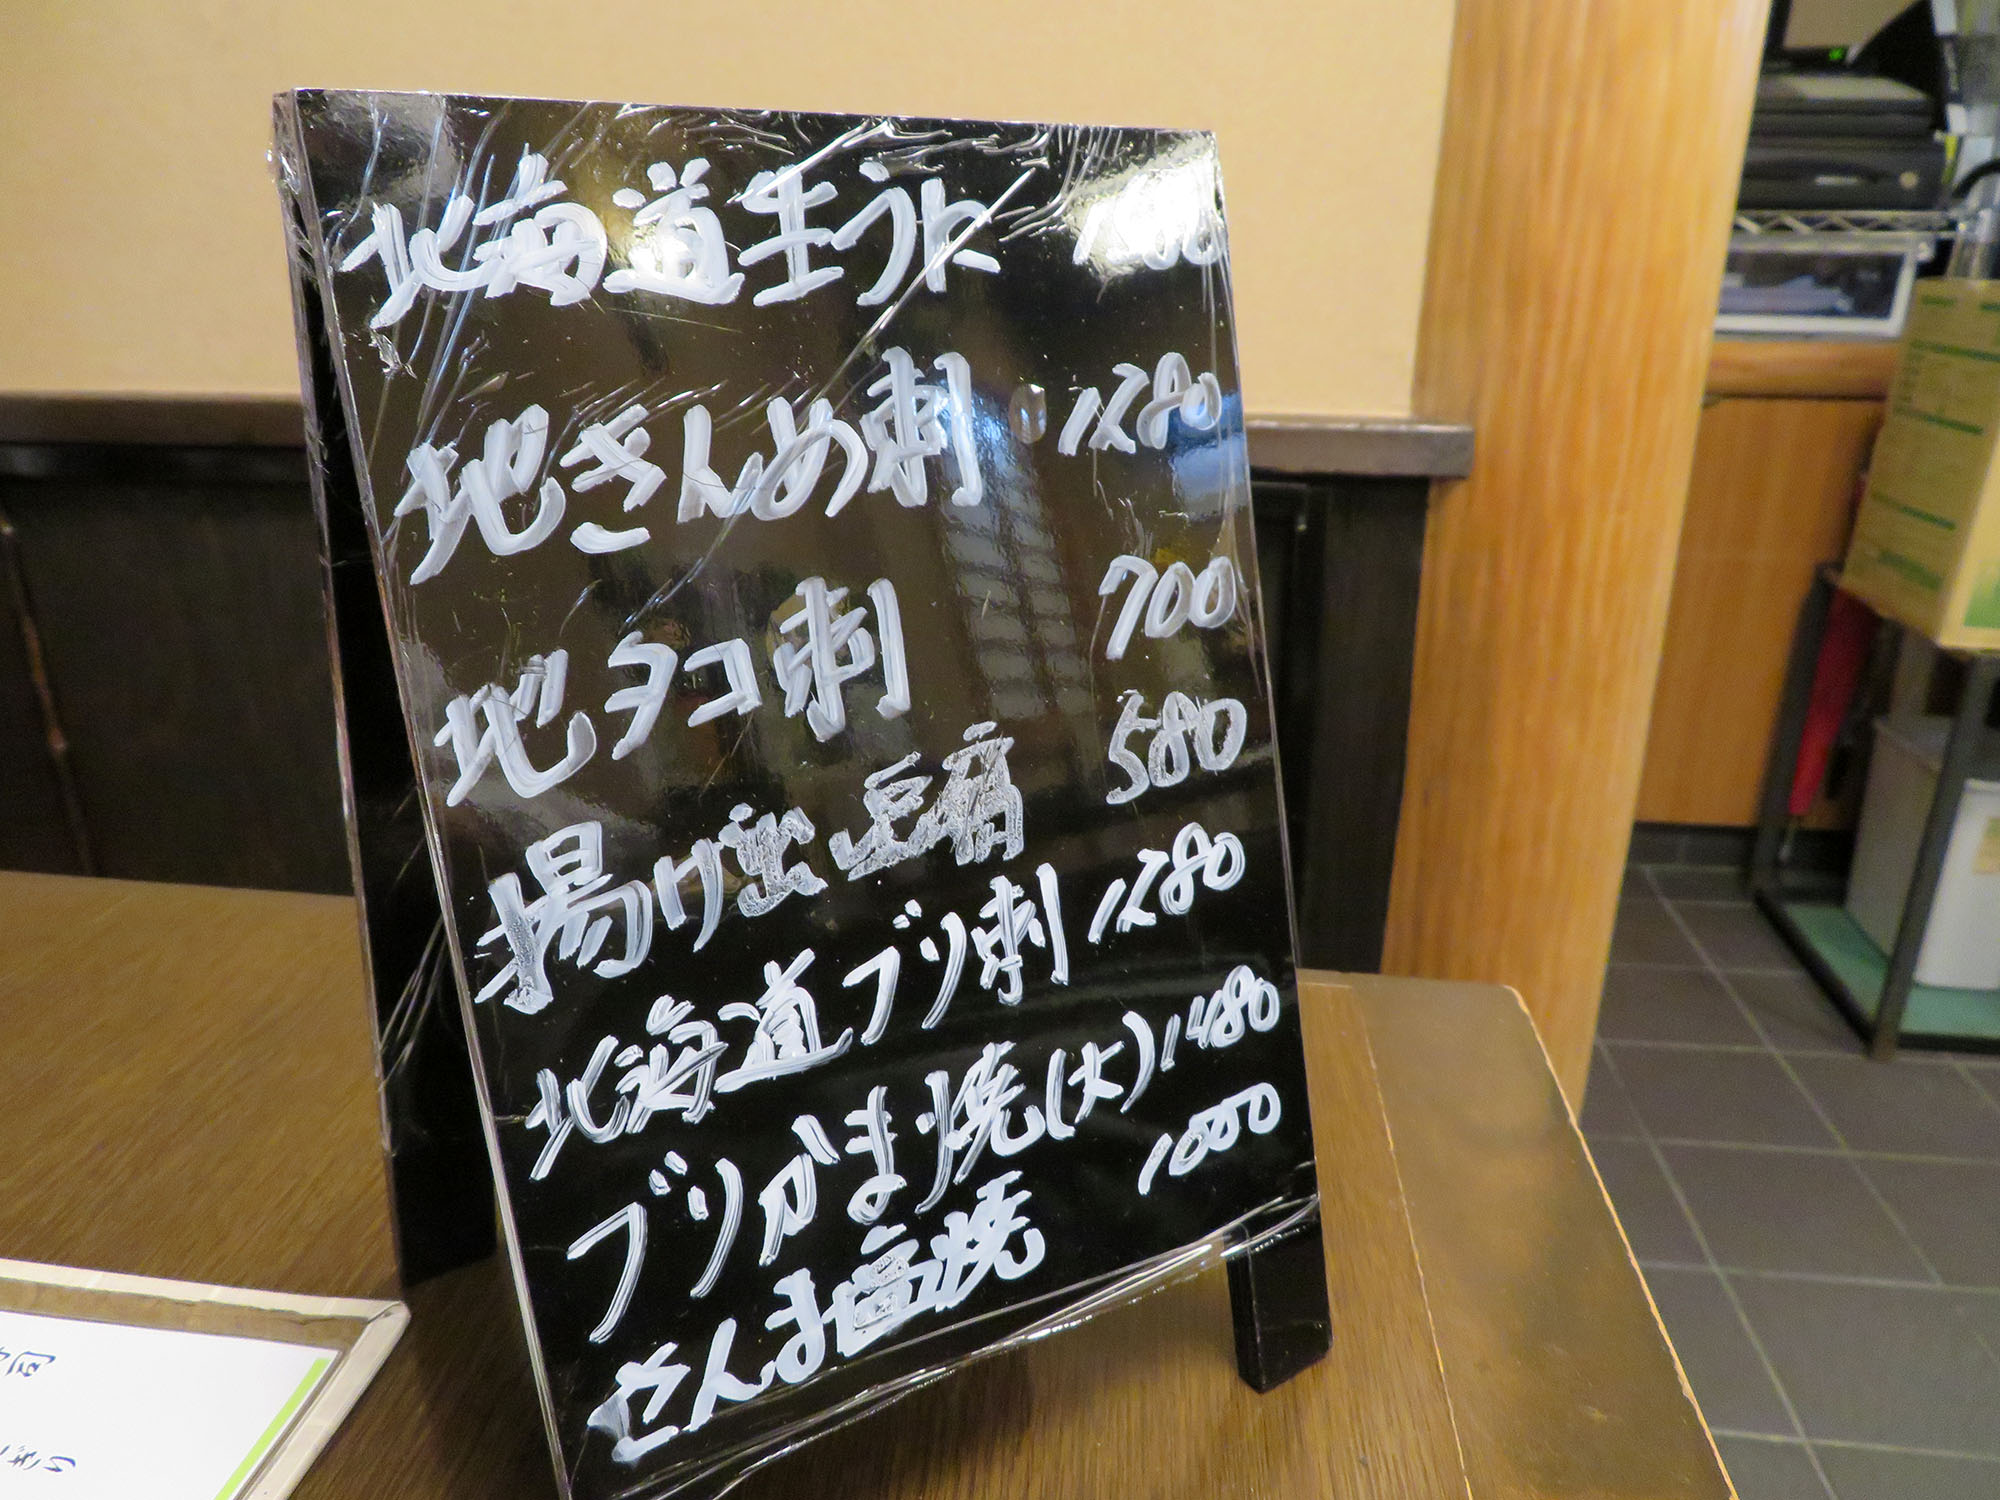 北海道生うに
地きんめ刺 1280
地タコ刺 700
揚げ出豆腐 580
北海道ブリ刺 1280
ブリかま焼(大) 1480
さんま塩焼 1000